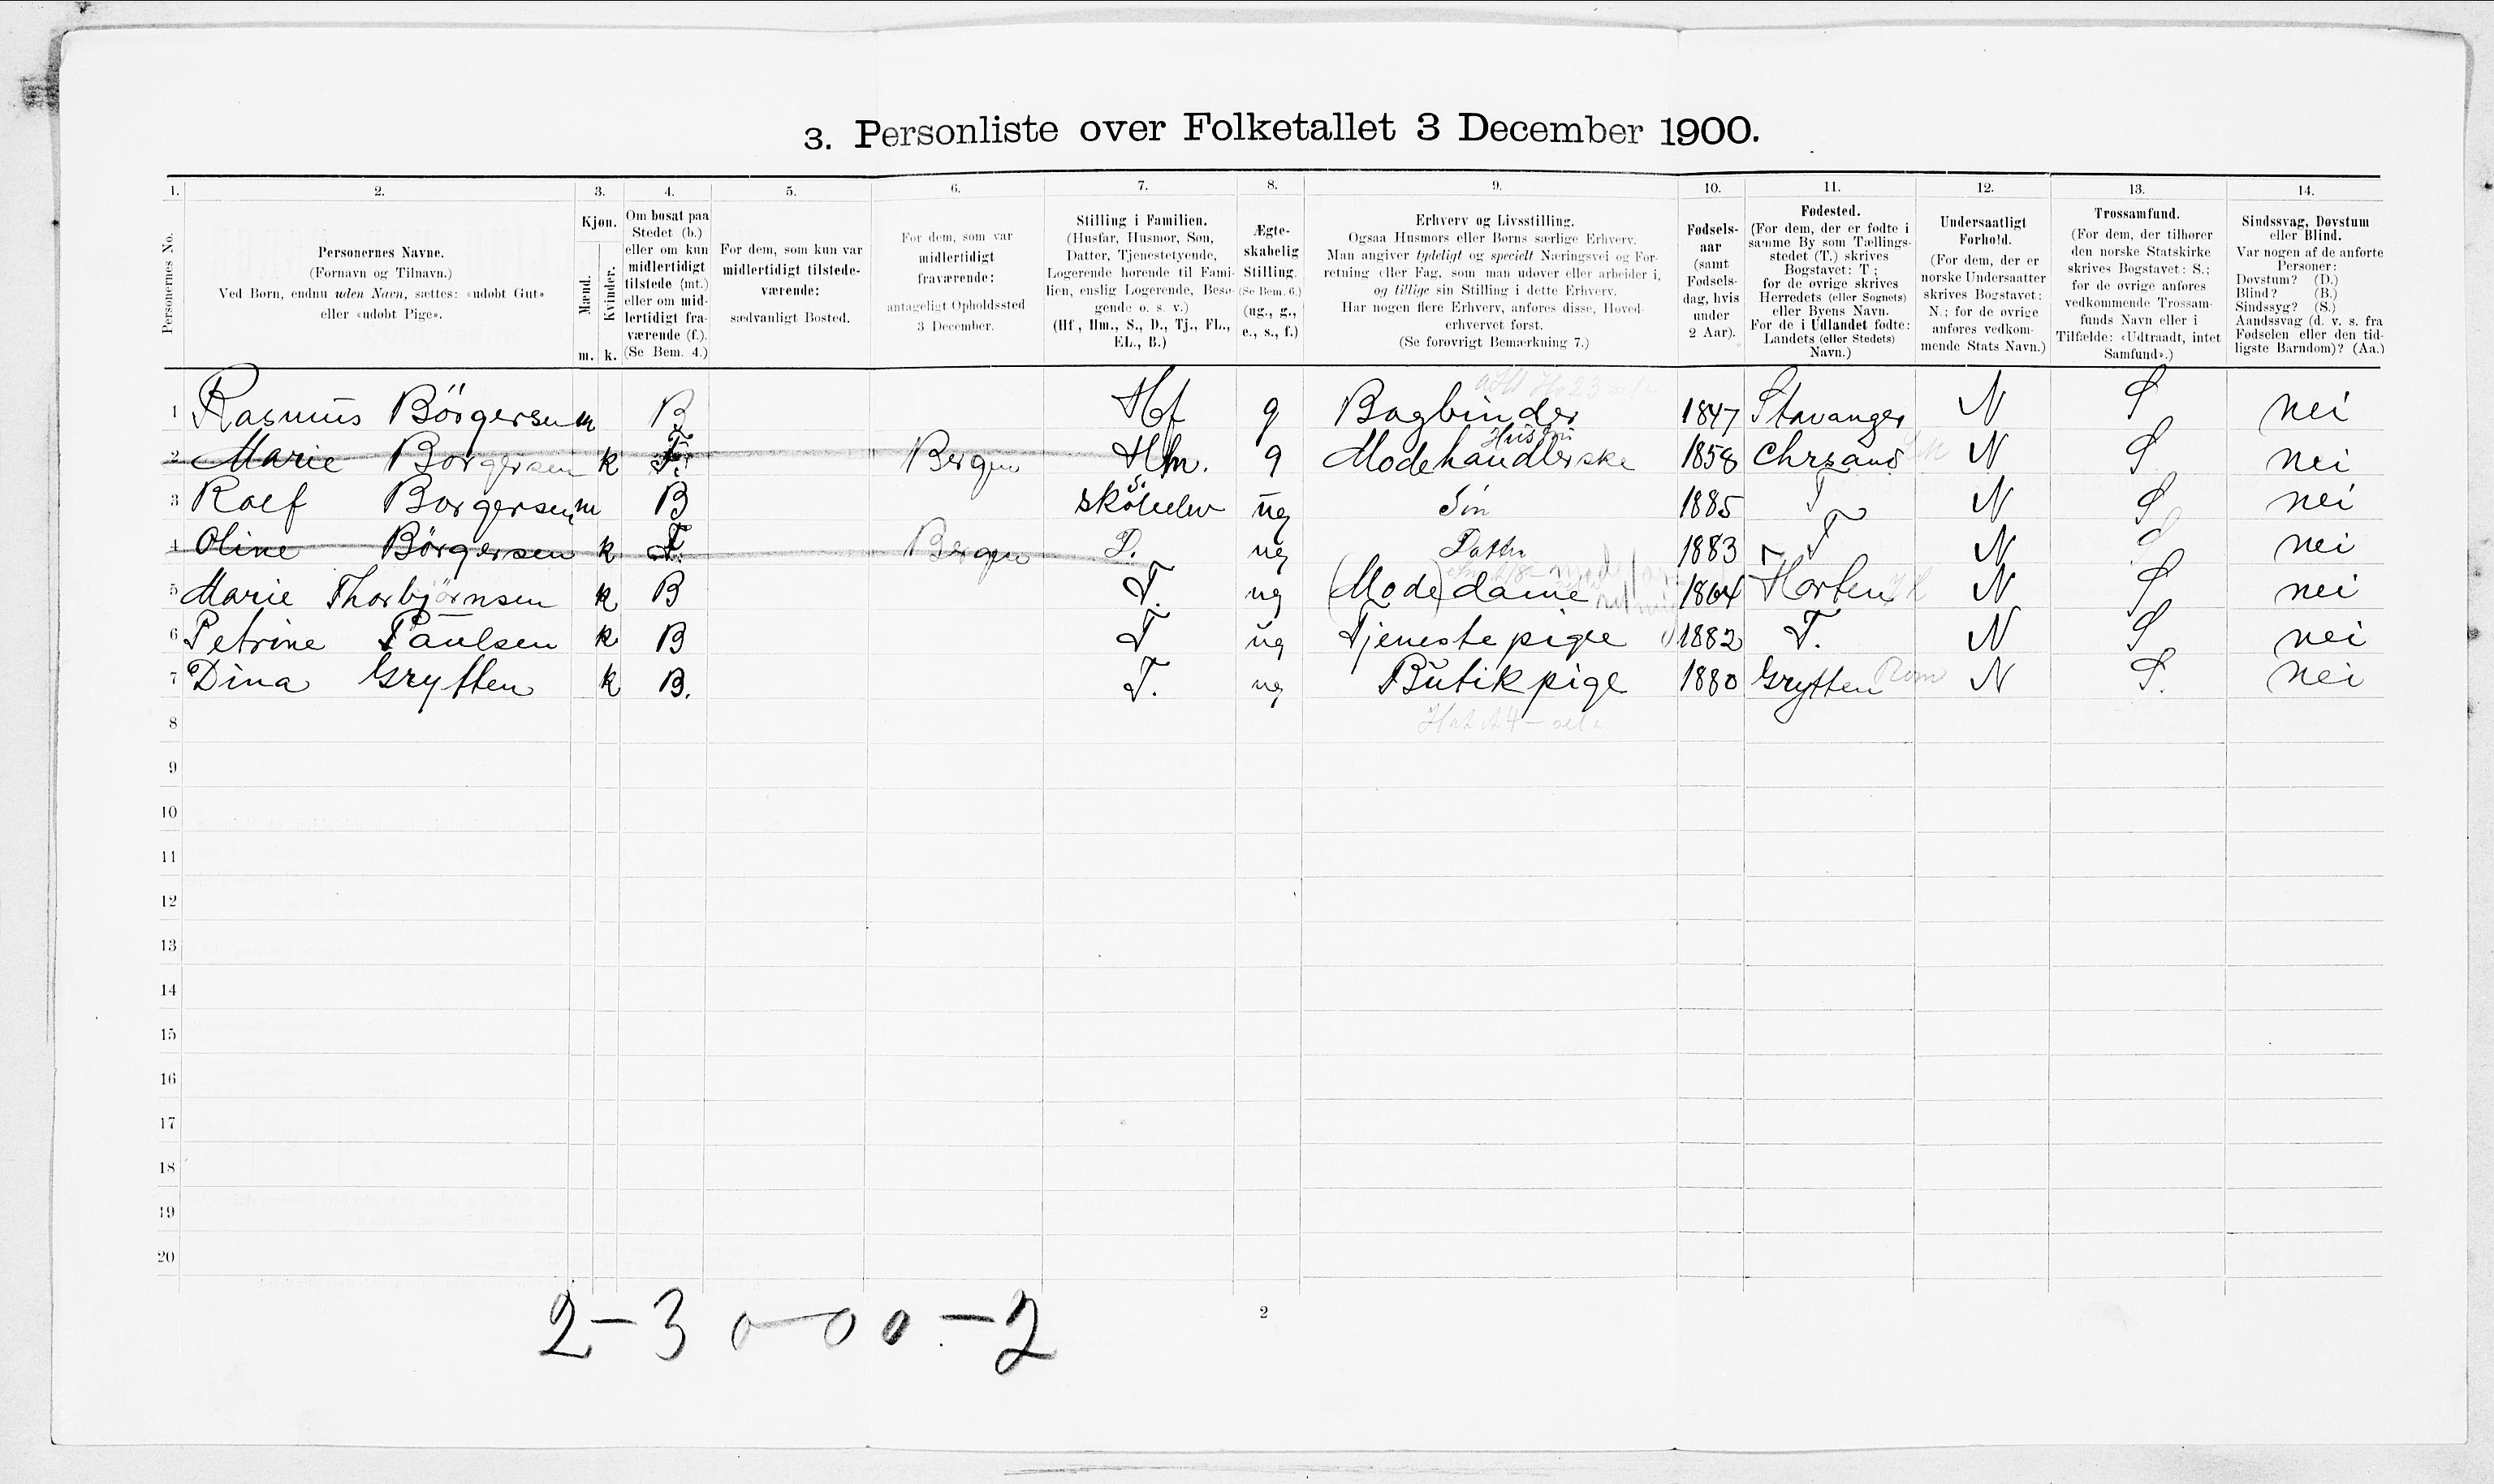 3. Personliste over Folketallet 3 December 1900.
1. 2. 3. 4. 5. 6. 7. 8. 9. 10. 11. 12. 13. 14.
Personernes No.
Personernes Navne.
(Fornavn og Tilnavn.)
Ved Børn, endnu uden Navn, sættes: «udøbt Gut»
eller «udøbt Pige».
Kjøn.
Mænd. Kvinder.
m. k.
Om bosat paa
Stedet (b.)
eller om kun
midlertidigt
tilstede (mt.)
eller om mid-
lertidigt fra-
værende (f.).
(Se Bem. 4.)
For dem, som kun var
midlertidigt tilstede-
værende:
sædvanligt Bosted.
For dem, som var
midlertidigt
fraværende:
antageligt Opholdssted
3 December.
Stilling i Familien.
(Husfar, Husmor, Søn,
Datter, Tjenestetyende,
Logerende hørende til Fami-
lien, enslig Logerende, Besø-
gende o. s. v.)
(Hf, Hm., S., D., Tj., FL.,
EL., B.)
Ægte-
skabelig
Stilling.
(Se Bem. 6.)
(ug., g.,
e., s., f.)
Erhverv og Livsstilling.
Ogsaa Husmors eller Børns særlige Erhverv.
Man angiver tydeligt og specielt Næringsvei og For-
retning eller Fag, som man udøver eller arbeider i,
og tillige sin Stilling i dette Erhverv.
Har nogen flere Erhverv, anføres disse, Hoved-
erhvervet først.
(Se forøvrigt Bemærkning 7.)
Fødsels-
aar
(samt
Fødsels-
dag, hvis
under
2 Aar).
Fødested.
(For dem, der er fødte i
samme By som Tællings-
stedet (T.) skrives
Bogstavet: T ;
for de øvrige skrives
Herredets (eller Sognets)
eller Byens Navn.
For de i Udlandet fødte:
Landets (eller Stedets)
Navn.)
Undersaatligt
Forhold.
(For dem, der er
norske Undersaatter
skrives Bogstavet:
N.; for de øvrige
anføres vedkom-
mende Stats Navn.)
Trossamfund.
(For dem, der tilhører
den norske Statskirke
skrives Bogstavet: S.;
for de øvrige anføres
vedkommende Trossam-
funds Navn eller i
Tilfælde: «Udtraadt, intet
Samfund».)
Sindssvag, Døvstum
eller Blind.
Var nogen af de anførte
Personer:
Døvstum? (D.)
Blind? (B.)
Sindssyg? (S.)
Aandssvag (d. v. s. fra
Fødselen eller den tid-
ligste Barndom)? (Aa.)
1 Rasmus Börgersen m B Hf g Bogbinder 1847 Stavanger N S nei
Husm
2 Marie Borgersen k F. Bergen Hm. g Modehandlerske 1858 Chrsand N S nei
S.
3 Rolf Borgersen m B skoleelev ug Sön 1885 T N S nei
4 Oline Börgersen k F. Bergen D. ug Datter 1883 T N S nei
5 Marie Thorbjörnsen k B T. ug (Mode) dame 1864 Horten N S nei
6 Petrine Paulsen k B T ug Tjenestepige 1882 T. N S nei
7 Dina Grytten k B. T. ug Butikpige 1880 Grytten Rom N S. nei
8
9
10
11
12
13
14
15
16
17
18
19
20
2-3 0-0 0-2
2